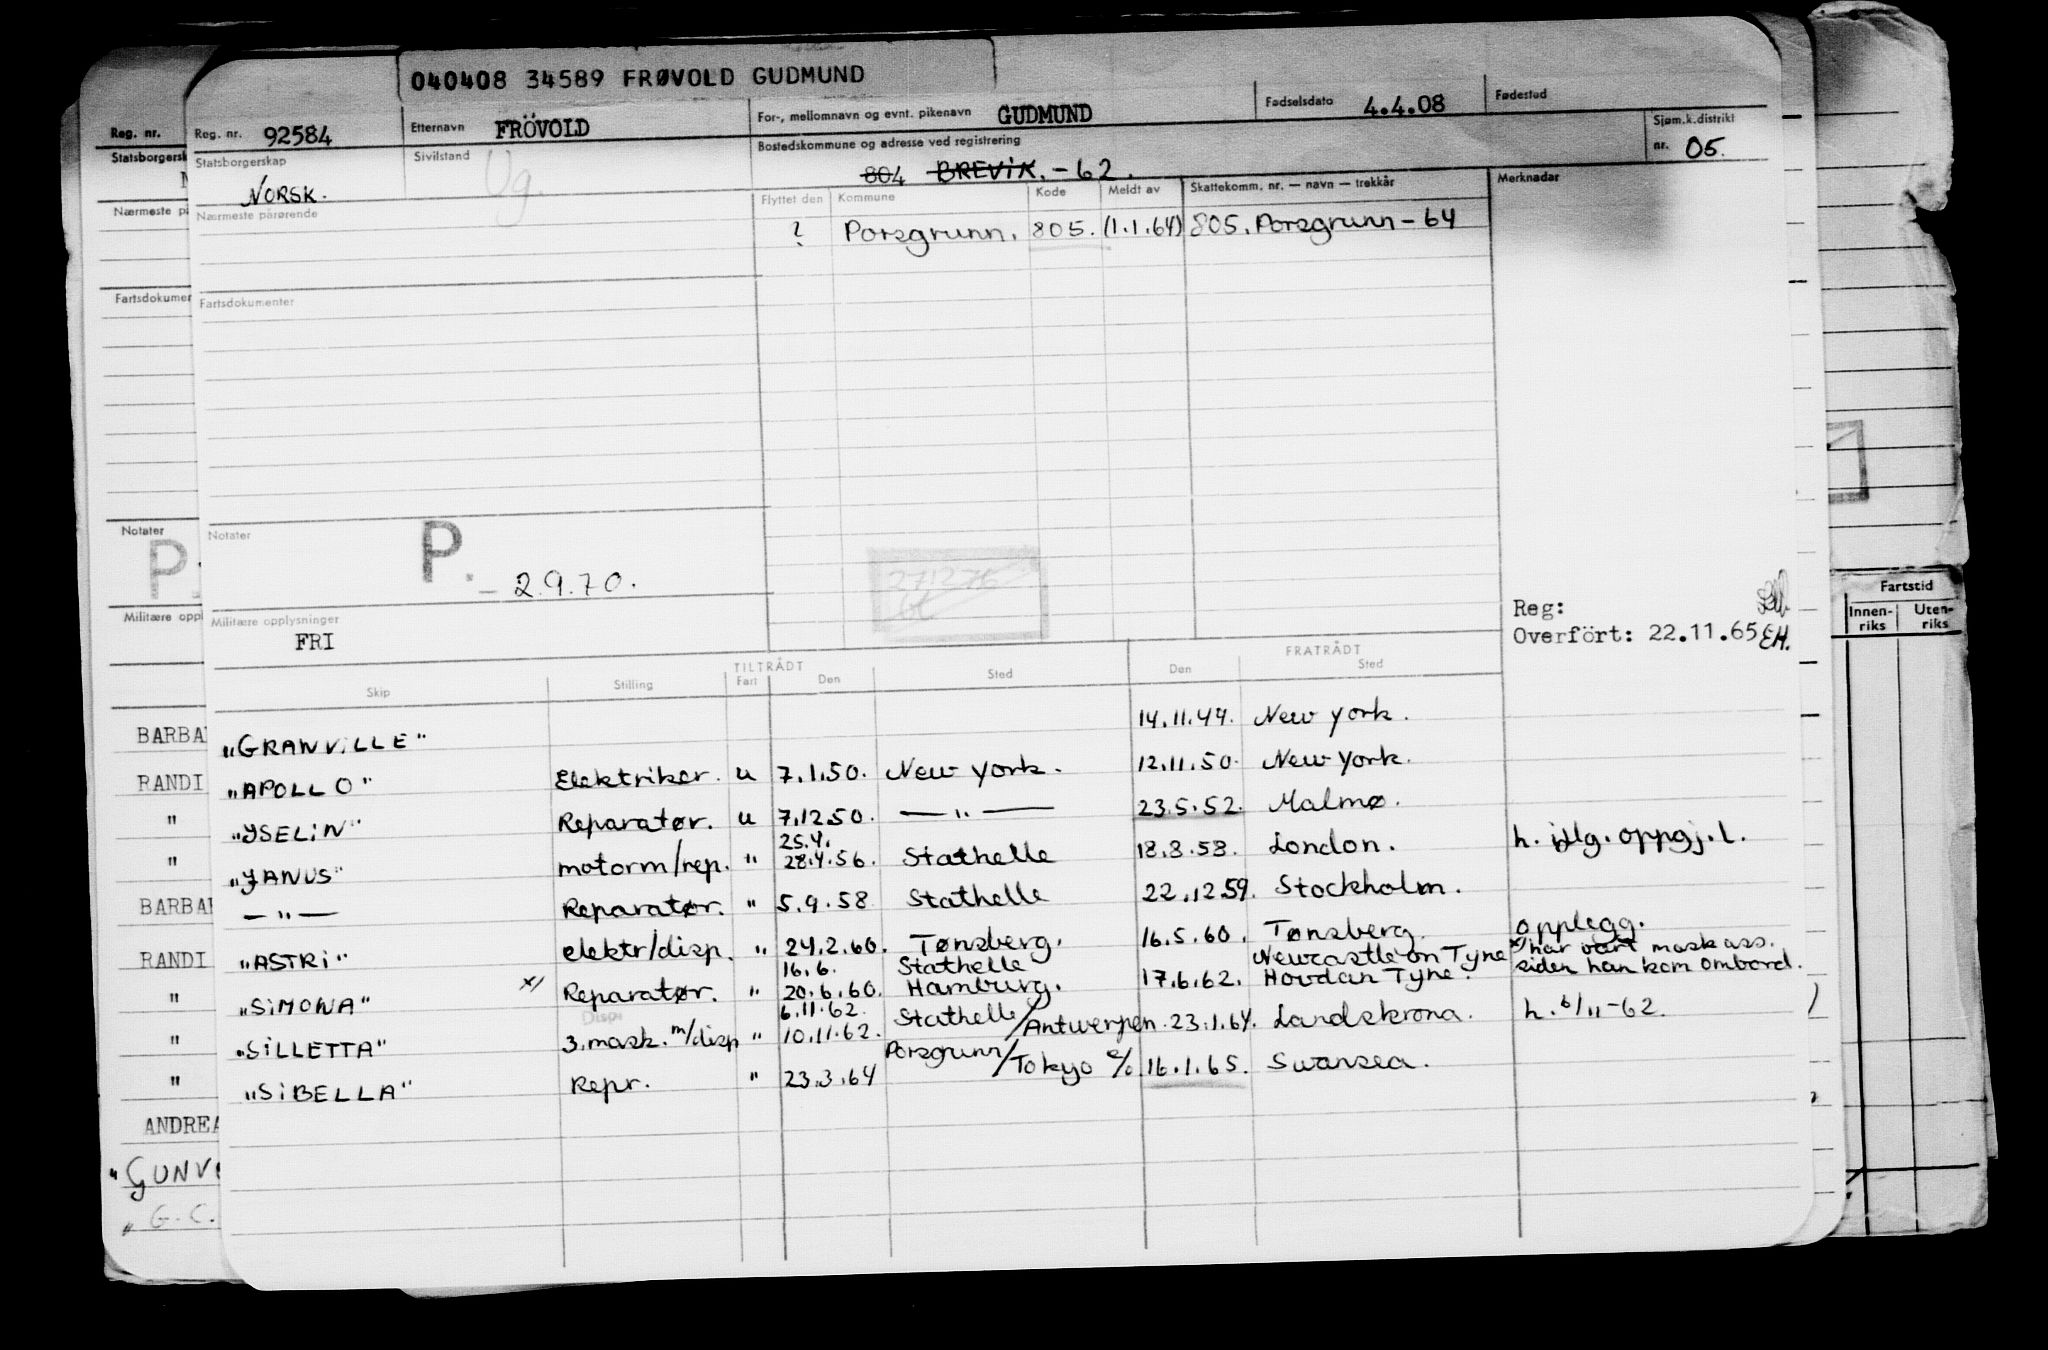 040408 34589 FRØVOLD GUDMUND
Reg. nr.
Reg. nr. 92584 Etternavn FRÖVOLD For-, mellomnavn og evnt. pikenavn GUDMUND Fødselsdato 4.4.08 Fødested
Statsborgersk
Statsborgerskap NORSK. Sivilstand Ug. Bostedskommune og adresse ved registrering 804 BREVIK. - 62. Sjøm.k.distrikt nr. 05.
Nærmeste på
Nærmeste pårørende
Flyttet den Kommune Kode Meldt av Skattekomm. nr. — navn — trekkår Merknader
? Porsgrunn. 805. (1.1.64) 805. Porsgrunn - 64
Fartsdokumen
Fartsdokumenter
Notater
P.
Notater
P. - 2.9.70.
271276
Militære oppl
Militære opplysninger
FRI
Reg:
Overfört: 22.11.65 EH.
Fartstid
Innen-riks Uten-riks
TILTRÅDT FRATRÅDT
Skip Stilling Fart Den Sted Den Sted
BARBA
"GRANVILLE" 14.11.44. New York.
RANDI
"APOLLO" Elektriker. u 7.1.50. New York. 12.11.50. New York.
"
"ISELIN" Reparatør. u 7.12.50. — " — 23.5.52. Malmø.
"
25.4.
"JANUS" motorm/rep. " 28.4.56. Stathelle 18.8.58. London. h. iflg. oppgj. l.
BARBA
— " — Reparatør. " 5.9.58 Stathelle 22.12.59. Stockholm.
RANDI
"ASTRI" elektr/disp. " 24.2.60. Tønsberg. 16.5.60. Tønsberg. opplegg.
"
16.6. Stathelle Newcastle on Tyne x/ har vært mask ass.
"SIMONA" x/ Reparatør. " 20.6.60. Hamburg. 17.6.62. Hovdan Tyne. siden han kom ombord.
"
Disp.
6.11.62.
"SILLETTA" 3. mask. m/disp " 10.11.62. Stathelle/Antwerpen. 23.1.64. Landskrona. h. 6/11-62.
"
"SIBELLA" Repr. " 23.3.64 Porsgrunn/Tokyo c/o 16.1.65. Swansea.
ANDREA
"GUNV
" G. C.